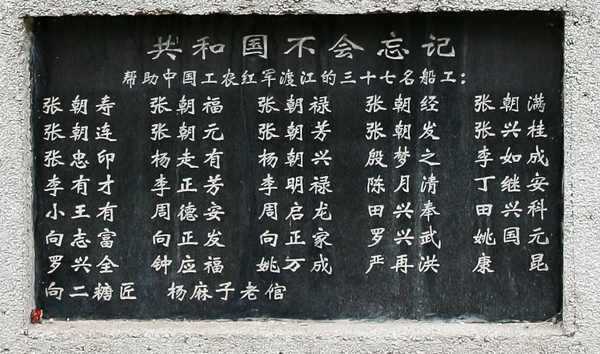 共和国不会忘记
帮助中国工农红军渡江的三十七名船工：
张朝寿 张朝福 张朝禄 张朝经 张朝满
张朝连 张朝元 张朝芳 张朝发 张兴桂
张忠印 杨走有 杨朝兴 殷梦之 李如成
李有才 李正芳 李明禄 陈月清 丁继安
小王有 周德安 周启龙 田兴奉 田兴科
向志富 向正发 向正家 罗兴武 姚国元
罗兴全 钟应福 姚万成 严再洪 康昆
向二糖匠 杨麻子老倌